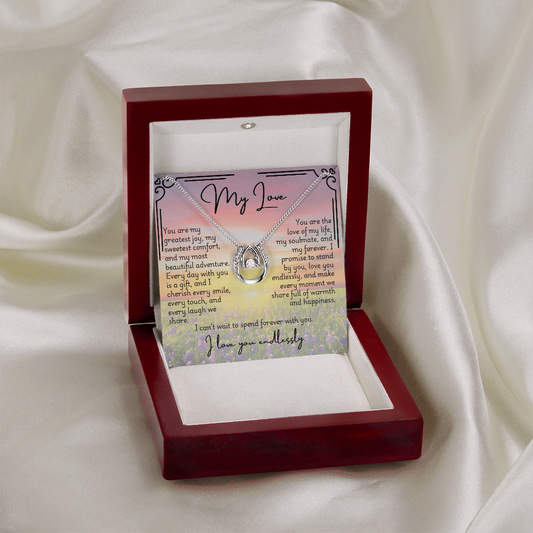 My Love
You are my
greatest joy, my
sweetest comfort,
and my most
beautiful adventure.
Every day with you
is a gift, and I
cherish every smile,
every touch, and
every laugh we
share.
You are the
love of my life,
my soulmate, and
my forever. I
promise to stand
by you, love you
endlessly, and make
every moment we
share full of warmth
and happiness.
I can't wait to spend forever with you.
I love you endlessly